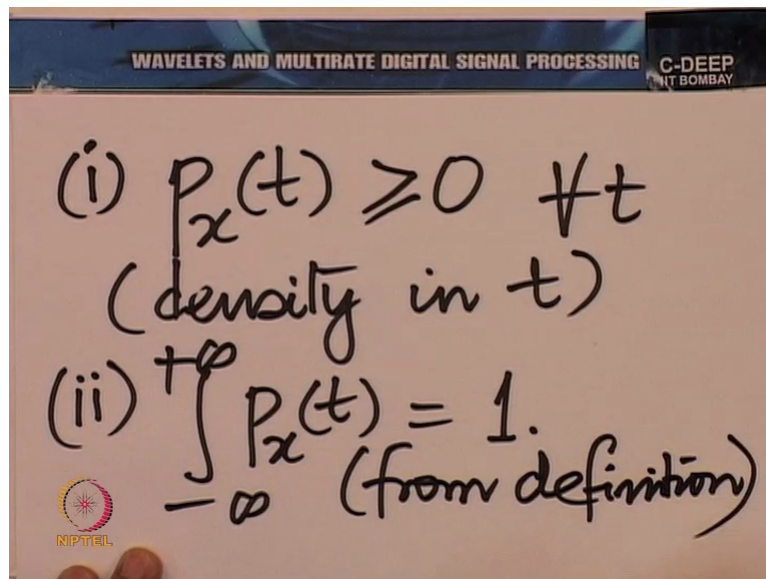 WAVELETS AND MULTIRATE DIGITAL SIGNAL PROCESSING
C-DEEP
IIT BOMBAY
(i) p_x(t) ≥ 0 ∀t
(density in t)
(ii) ∫_{-∞}^{+∞} p_x(t) = 1.
(from definition)
NPTEL